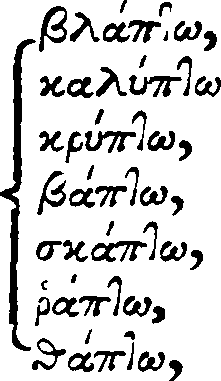 βλάπτω,
καλύπτω
κρύπτω,
βάπτω,
σκάπτω,
ῥάπτω,
θάπτω,